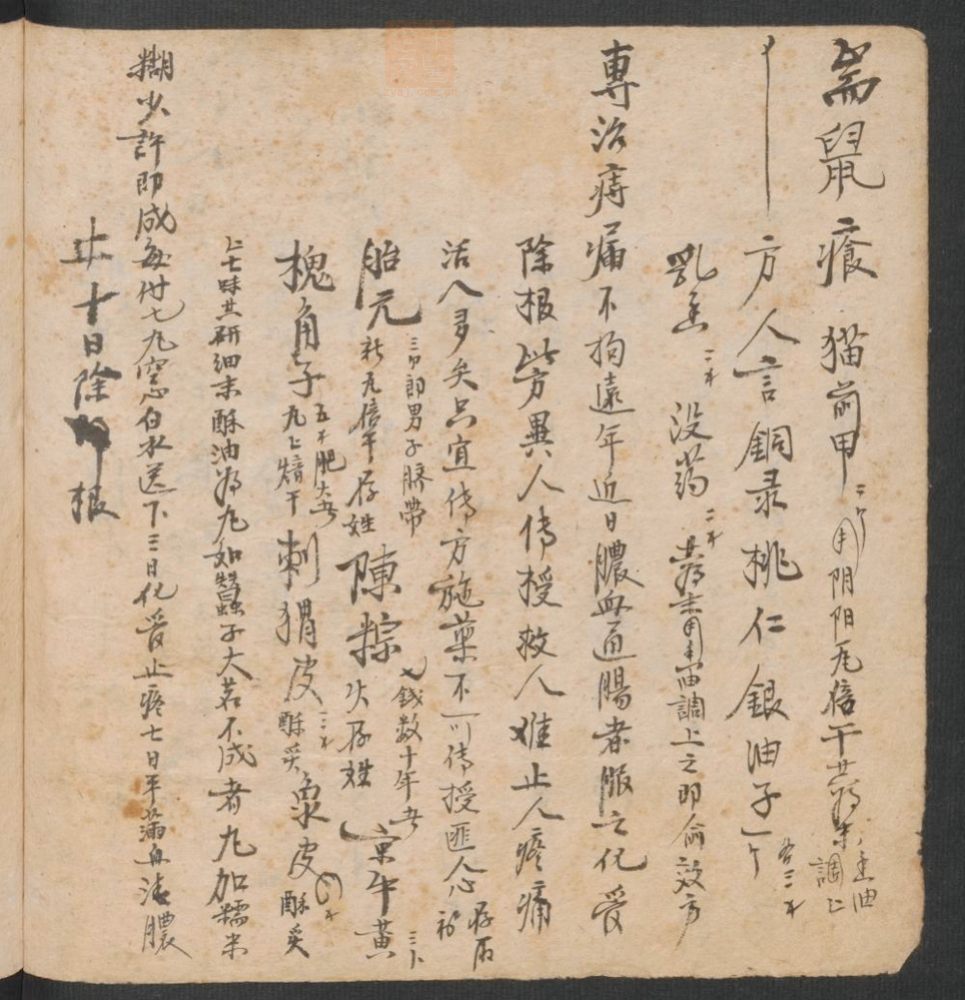 鼠瘡 猫前甲 二个 用阴阳瓦焙干 共為末 香油調上
一方 人言 銅录 桃仁 銀油子 一个 各三才
乳香 二才 没药 二才 共為末 用香油調上之即愈效方
專治痔漏不拘遠年近日膿血通腸者服之化管
除根此方異人传授救人难止人疼痛
活人多矣只宜传方施薬不可传授匪人心
胎元 三个 即男子脐帶 新瓦焙干存姓 陳粽 七錢 数十年者 火存姓 京牛黄 三卜
槐角子 五才 肥大者 瓦上焙干 刺猬皮 二才 酥炙 象皮 酥炙
上七味共研细末酥油為丸如蠶子大若不成者丸加糯米
糊少许即成每付七九空心白水送下三日化管止疼七日平漏血清膿
止十日除根